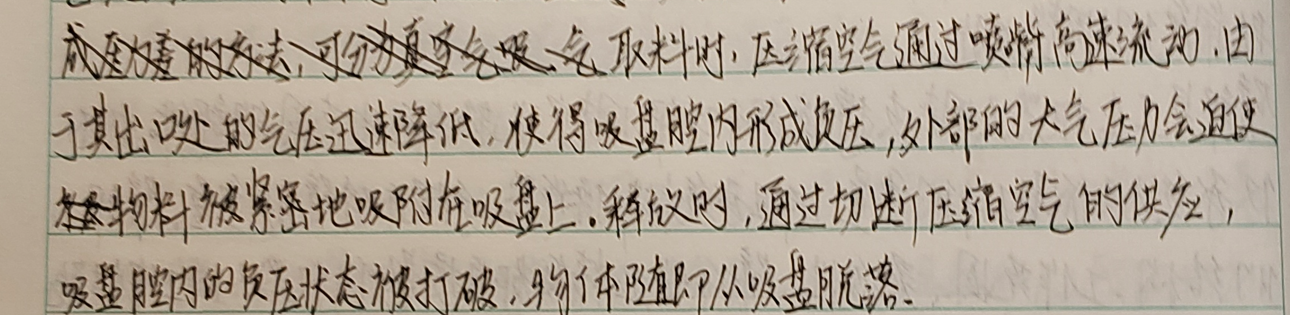 成压力差的方法,可分为真空气吸、气 取料时,压缩空气通过喷嘴高速流动,由
于其出口处的气压迅速降低,使得吸盘腔内形成负压,外部的大气压力会迫使
物料被紧密地吸附在吸盘上。释放时,通过切断压缩空气的供应,
吸盘腔内的负压状态被打破,物体随即从吸盘脱落。